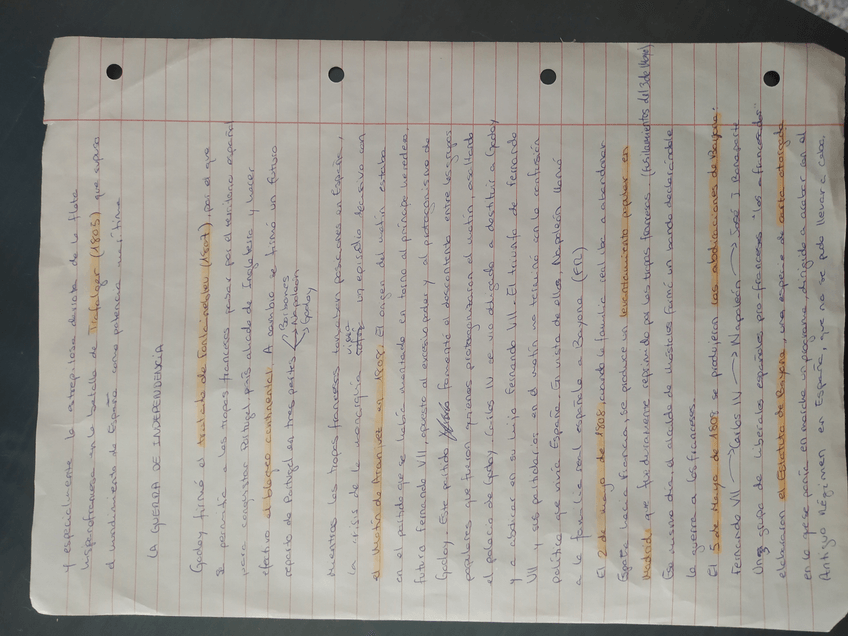 y especialmente la estrepitosa derrota de la flota
hispanofrancesa en la batalla de Trafalgar (1805) que supuso
el hundimiento de España como potencia marítima
LA GUERRA DE INDEPENDENCIA
Godoy firmó el tratado de Fontainebleu (1807), por el que
se permitía a las tropas francesas pasar por el territorio español
para conquistar Portugal, país aliado de Inglaterra y hacer
efectivo el bloqueo continental. A cambio se firmó un futuro
reparto de Portugal en tres partes
Borbones
Napoleón
Godoy
Mientras las tropas francesas tomaban posiciones en España,
la crisis de la monarquía vivía un episodio decisivo con
el Motín de Aranjuez en 1808. El origen del motín estaba
en el partido que se había montado en torno al príncipe heredero,
futuro Fernando VII, opuesto al excesivo poder y al protagonismo de
Godoy. Este partido fomentó el descontento entre los grupos
populares que fueron quienes protagonizaron el motín, asaltando
el palacio de Godoy. Carlos IV se vio obligado a destituir a Godoy
y a abdicar en su hijo Fernando VII. El triunfo de Fernando
VII y sus partidarios en el motín no terminó con la confusión
política que vivía España. En vista de ello, Napoleón llamó
a la familia real española a Bayona (FR)
El 2 de mayo de 1808, cuando la familia real iba a abandonar
España hacia Francia, se produce un levantamiento popular en
Madrid que fue duramente reprimido por las tropas francesas. (fusilamientos del 3 de Mayo)
Ese mismo día, el alcalde de Móstoles firmó un bando declarándole
la guerra a los franceses.
El 5 de Mayo de 1808 se produjeron las abdicaciones de Bayona:
Fernando VII → Carlos IV → Napoleón → José I Bonaparte
Un grupo de liberales españoles pro-franceses "los afrancesados"
elaboraron el Estatuto de Bayona, una especie de carta otorgada
en la que se ponía en marcha un programa, dirigido a acabar con el
Antiguo Régimen en España, que no se pudo llevar a cabo.